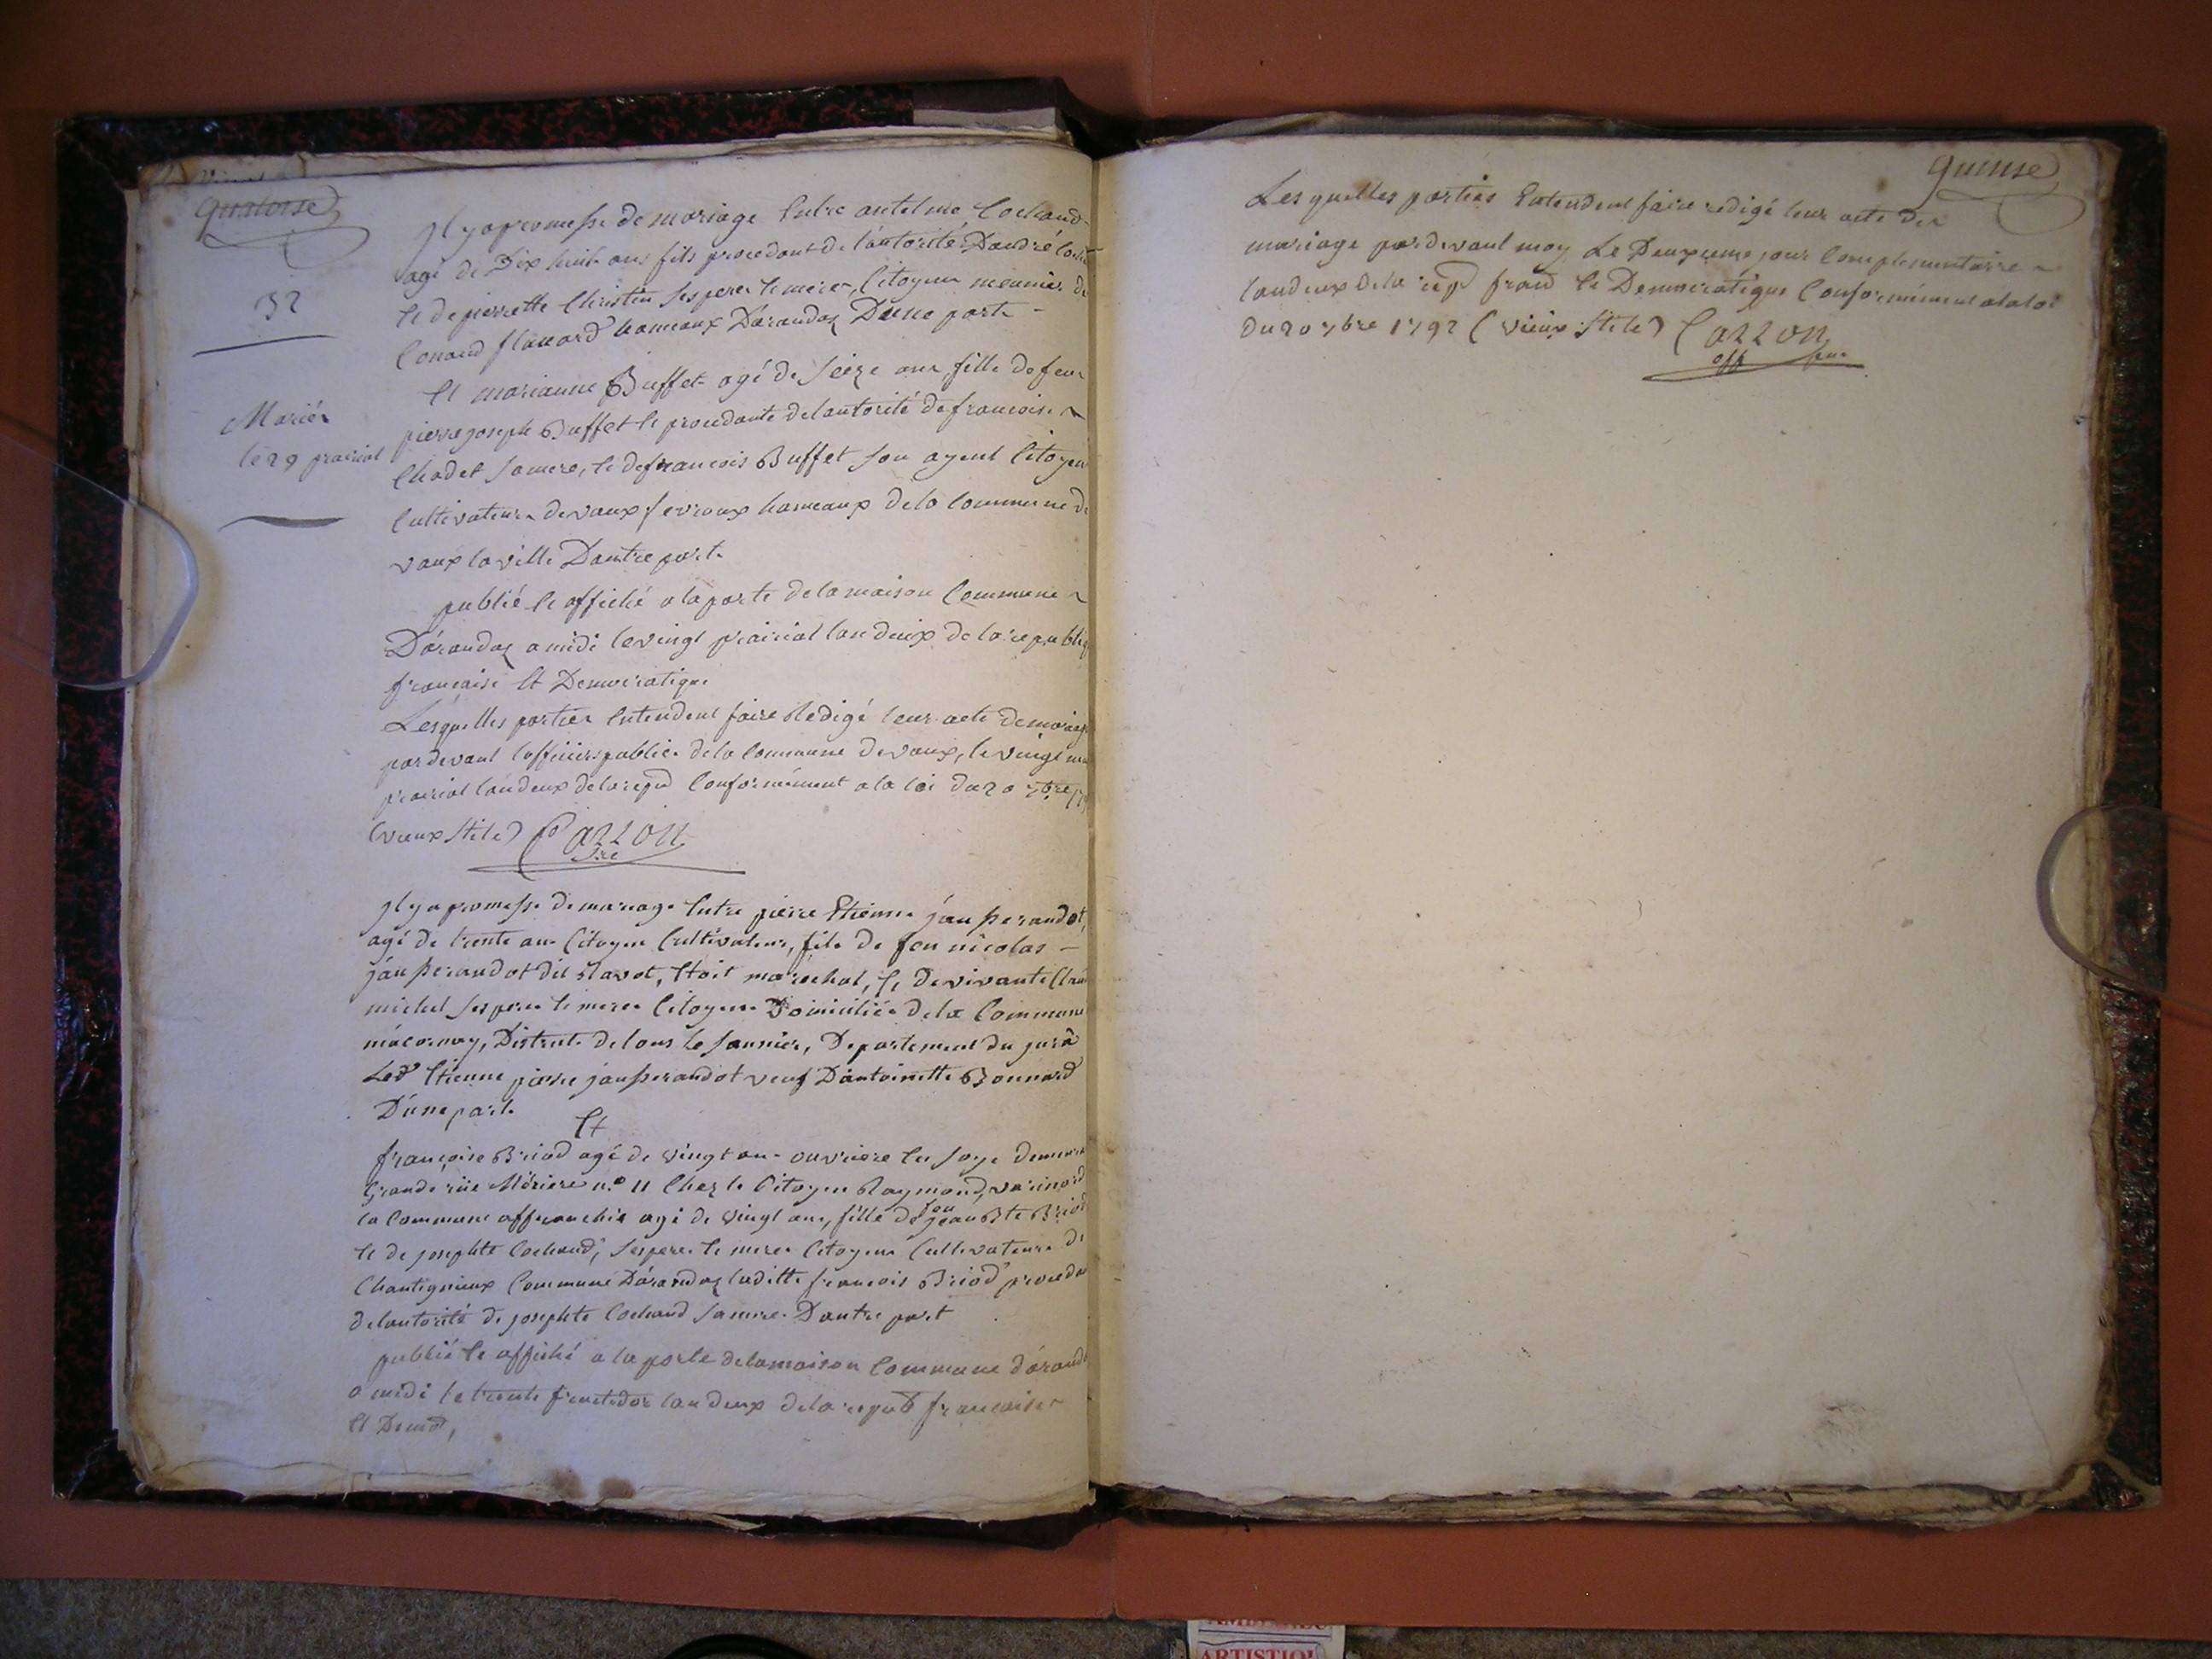 quatorse
32
Mariés
le 29 prairial
Il y a promesse de mariage Entre antelme Cochand
agé de Dix huit ans fils procedant de l'autorité D'andré
et de pierrette Christin ses pere et mere, Citoyen meunier de
hameaux Darandaz D'une part
Et marianne Buffet agé de seize ans, fille de feu
pierre joseph Buffet et procedante de lautorité de francoise
Chadet sa mere, et de francois Buffet son ayeul Citoyen
Cultivateurs de vaux fevroux hameaux de la Commune de
vaux la ville D'autre part
publié et affiché a la porte de la maison Commune
D'arandaz a midi le vingt prairial lan deux de la republiq
francaise Et Democratique
Lesquelles parties Entendent faire Redigé leur acte de mariage
pardevant l'officier public de la Commune de vaux, le vingt
prairial lan deux de la repud Conformément a la loi du 20 7bre
(vieux stile) Cazzon
sre
Il y a promesse de mariage Entre pierre Etienne jeauperandot,
agé de trente ans Citoyen Cultivateur, fils de feu nicolas
jeauperandot dit Navot, Etoit marechal, Et de vivante
michel ses pere et mere Citoyens Domiciliés de la Commune
macornay, District de lons le saunier, Departement du jura
Led Etienne pierre jauperandot veuf D'antoinette Bonnard
D'une part
Et
françoise Briod agé de vingt ans ouvriere En soye
Grande rüe Mériere n.o 11 Chez le Citoyen Raymond,
la Commune affranchie agé de vingt ans, fille de feu jean Bte Briod
et de josephte Cochand, ses pere et mere Citoyens Cultivateurs de
Chantignieux Commune D'arandaz laditte francois Briod
de lautorité de josephte Cochand sa mere D'autre part
publié et affiché a la porte de la maison Commune d'arand
a midi le trente fructidor lan deux de la repub francaise
Et Demod,
quinse
Lesquelles parties Entendent faire redigé leur acte de
mariage pardevant moy Le Deuxieme jour Complementaire
landeux de la rep frand Et Democratique Conformément a la loi
du 20 7bre 1792 (vieux stile) Cazzon
off pu